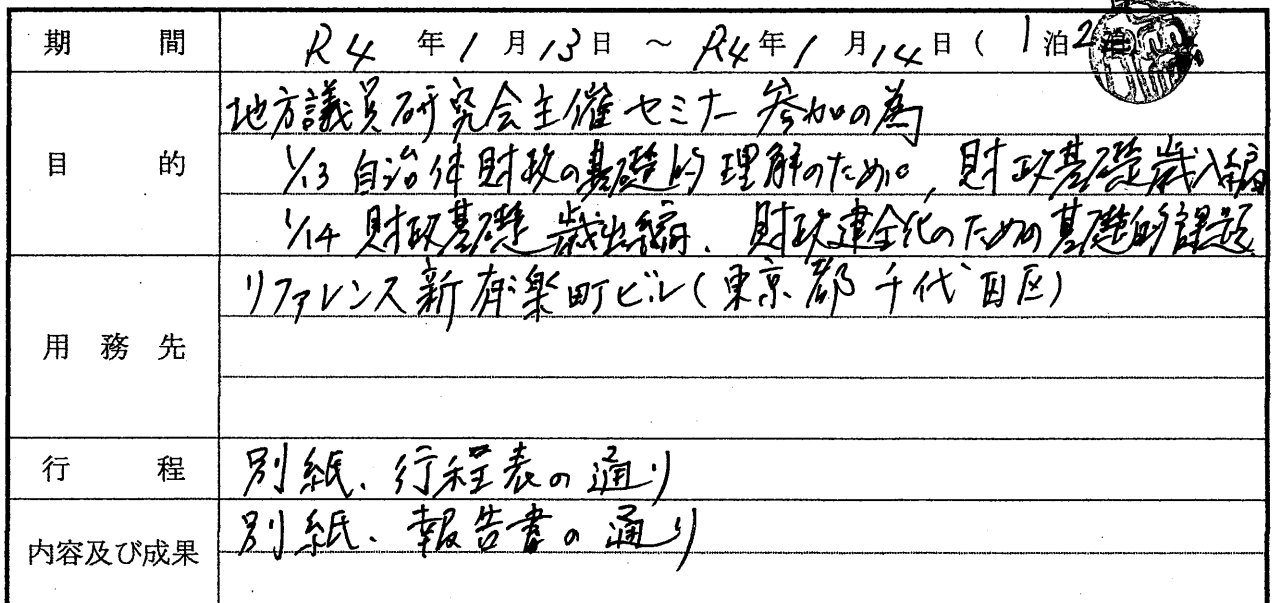 期間 R4年1月13日 ~ R4年1月14日(1泊2
目的 地方議員研究会主催セミナー参加の為
1/13 自治体財政の基礎的理解のために,財政基礎歳入編
1/14 財政基礎歳出編、財政建全化のための基礎的課題
用務先 リファレンス新有楽町ビル(東京都千代田区)
行程 別紙、行程表の通り
内容及び成果 別紙、報告書の通り